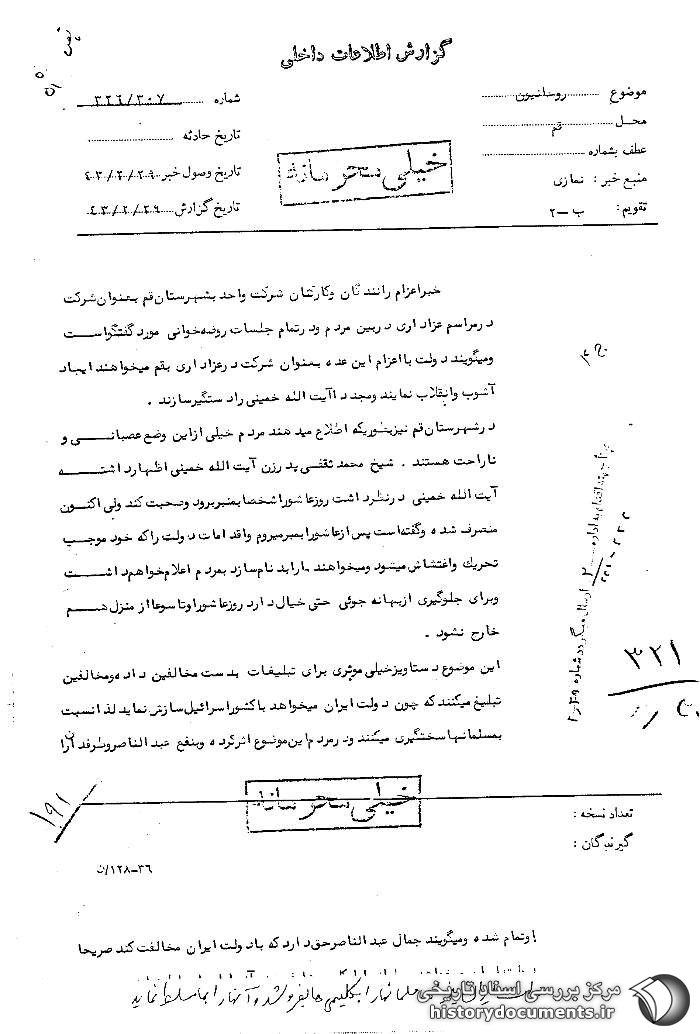 گزارش اطلاعات داخلی
موضوع روحانیون
محل قم
عطف بشماره
منبع خبر : نمازی
تقویم : ب-۲
شماره ۳۲۶/۳۰۷
تاریخ حادثه
تاریخ وصول خبر ۴۳/۲/۲۹
تاریخ گزارش ۴۳/۲/۲۹
خیلی محرمانه
خبراعزام رانندگان وکارکنان شرکت واحد بشهرستان قم بعنوان شرکت
درمراسم عزاداری دربین مردم ودرتمام جلسات روضه‌خوانی موردگفتگواست
ومیگویند دولت بااعزام این عده بعنوان شرکت درعزاداری بقم میخواهند ایجاد
آشوب وانقلاب نمایند ومجددا آیت الله خمینی رادستگیرسازند .
درشهرستان قم نیزبطوریکه اطلاع میدهند مردم خیلی ازاین وضع عصبانی و
ناراحت هستند . شیخ محمد ثقفی پدرزن آیت الله خمینی اظهارداشته
آیت الله خمینی درنظرداشت روزعاشوراشخصا بمنبربرود وصحبت کند ولی اکنون
منصرف شده وگفته‌است پس ازعاشورابمبرمیروم واقدامات دولت راکه خود موجب
تحریك واغتشاش میشود ومیخواهند مارابدنام سازد بمردم اعلام خواهم داشت
وبرای جلوگیری ازبهانه جوئی حتی خیال دارد روزعاشوراوتاسوعا ازمنزل هم
خارج نشود .
این موضوع دستاویزخیلی موثری برای تبلیغات بدست مخالفین داده ومخالفین
تبلیغ میکنند که چون دولت ایران میخواهد باکشوراسرائیل سازش نماید لذا نسبت
بمسلمانهاسختگیری میکنند ودرمردم این موضوع اثرکرده وبنفع عبدالناصروطرفداران
خیلی محرمانه
تعداد نسخه :
گیرندگان :
۱۹۱
۳۲۱
۳۶-۱۲۸/ن
اوتمام شده ومیگویند جمال عبدالناصرحق دارد که بادولت ایران مخالفت کند صریحا
مرکز بررسی اسناد تاریخی
historydocuments.ir